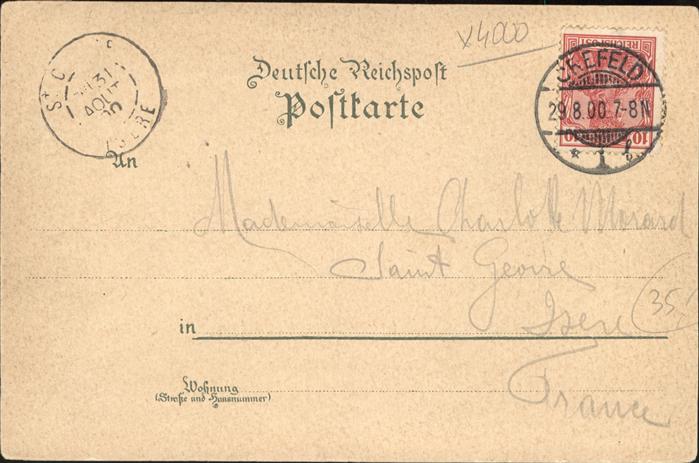 x4000
Deutsche Reichspost
Postkarte
REICHSPOST
10 10
CREFELD
29.8.00.7-8N
* 1 f
31
AOUT
00
ISERE
An
Mademoiselle Charlotte Morard
Saint Geoire
Isere
35
in
France
Wohnung
(Straße und Hausnummer)